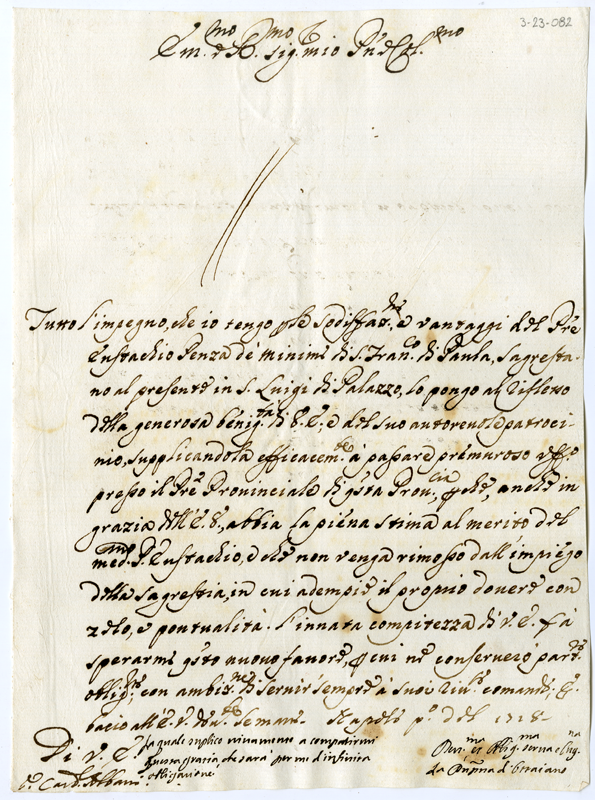 3-23-082
Em.mo e R.mo Sig. mio P.ne Col.mo
Tutto l'impegno, che io tengo p le sodisfat.ni e vantaggi del Pre
Eustachio Penza de minimi di S. Fran.co di Paula, sagresta-
no al presente in S. Luigi di Palazzo, lo pongo al riflesso
della generosa benig.tà di V. E. e del suo autorevole patroci-
nio, supplicandola efficacem.te à passare premuroso uff.o
presso il Pre Provinciale di q.sta Prov.cia, p che, anche in
grazia dell'E. V., abbia la piena stima al merito del
med.mo P. Eustachio, e che non venga rimosso dall'impiego
della sagrestia, in cui adempie il proprio dovere con
zelo, e pontualità. L'innata compitezza di V. E. fà
sperarmi q.sto nuovo favore, p cui ne conserverò part.re
oblig.ne, con ambiz.ne di servir sempre à suoi riv.i comandi, e
bacio all'E. V. le mani. Napoli p.o del 1718
Di V. E. la quale suplico vivamente a compatirmi
questa grazia, che sarà per me d'infinita
obligazione
Car. Albani
Div.ma et oblig.ma serva e
La d'Ottaiano